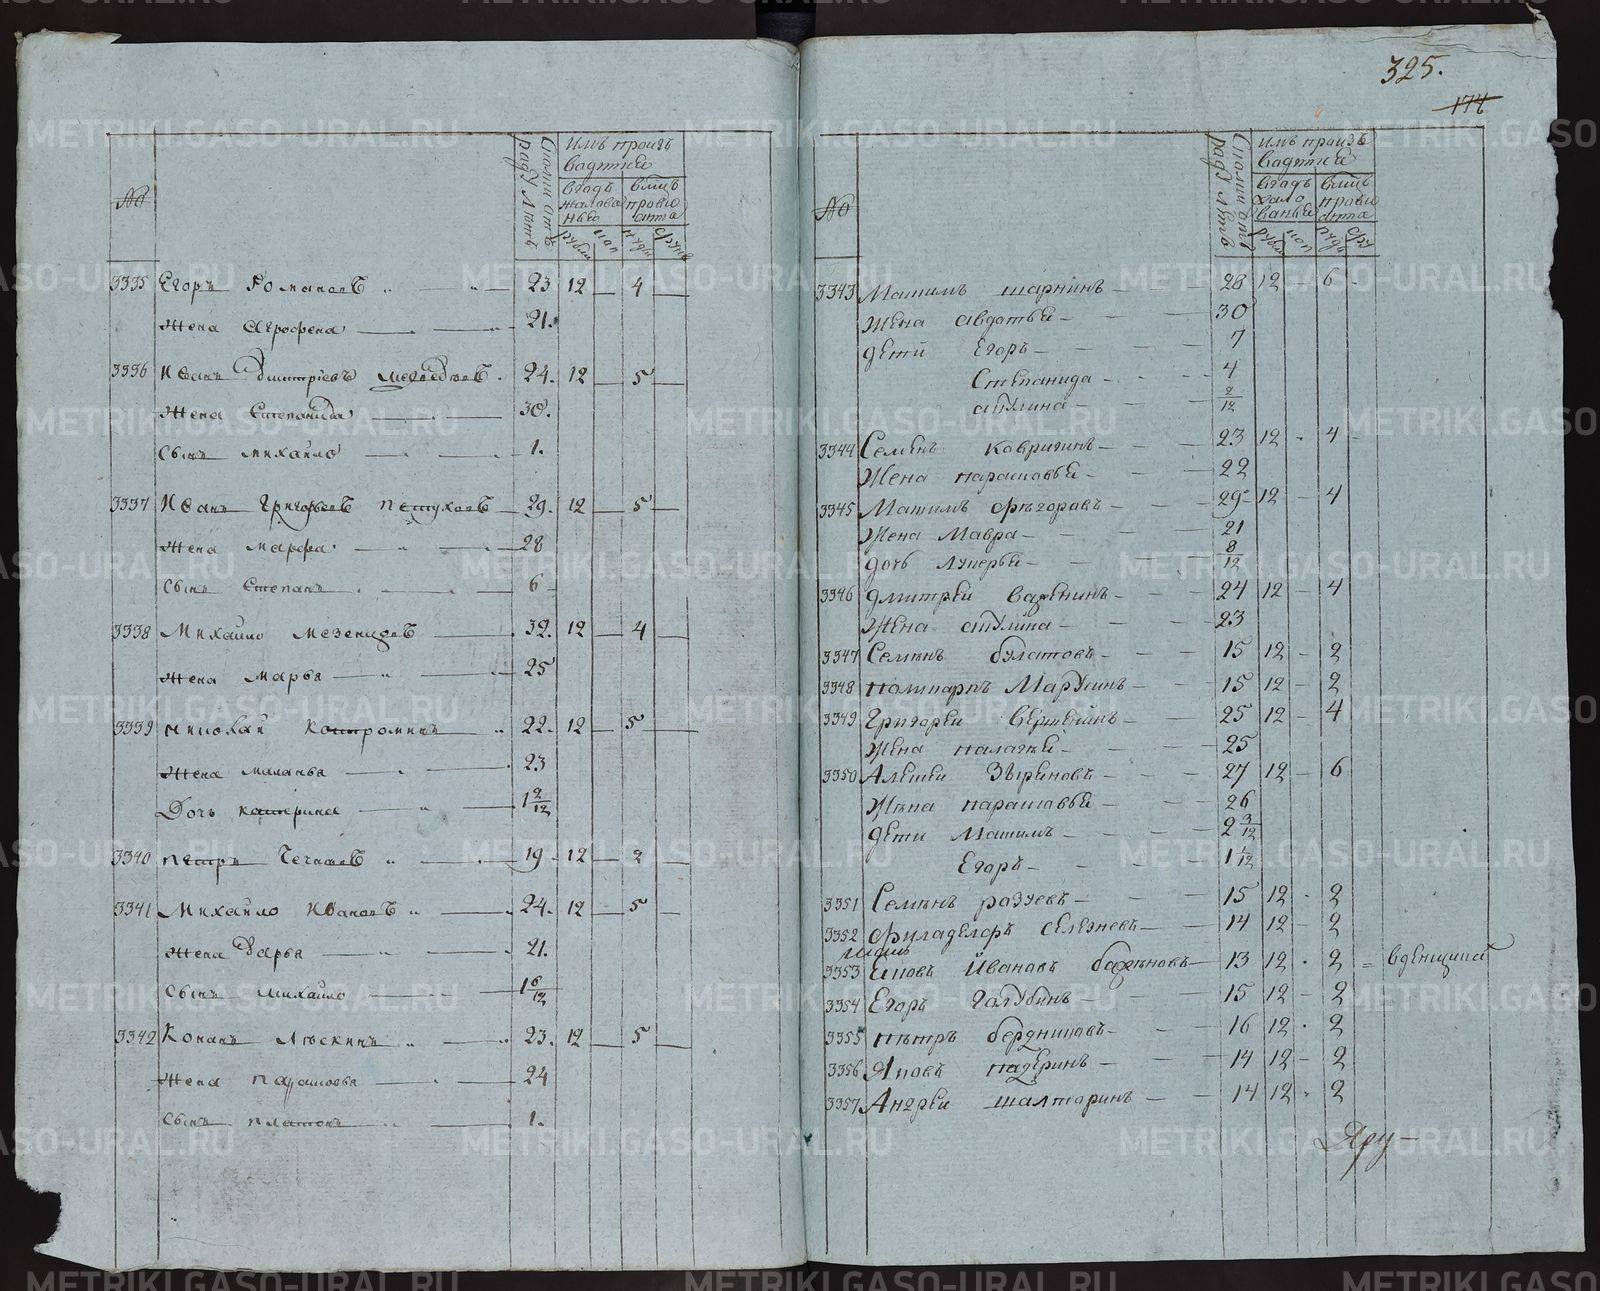 325.
174
№
Сколки отъ роду летъ
Имъ произъ
вадитца
вгодъ жалова нья
вмцъ провианта
рубли
коп
пуды
фунт
3335 Егоръ Романовъ 23 12 4
жена Агрофена 21.
3336 Иванъ Дмитріевъ Медведковъ 24. 12 5
жена Степанида 30.
сынъ михайло 1.
3337 Иванъ Григорьевъ Петуховъ 29. 12 5
жена марфа 28
сынъ Степанъ 6
3338 Михайло Мезенцовъ 32. 12 4
жена Марья 25
3339 николай Костроминъ 22. 12 5
жена маланья 23
Дочь катерина 1 2/12
3340 петръ Чегановъ 19 12 2
3341 Михайло Ивановъ 24. 12 5
жена Дарья 21.
сынъ михайло 1 6/12
3342 Конанъ Лоскинъ 23. 12 5
жена парасковья 24
сынъ платонъ 1.
№
имъ произъ
вадитца
вгодъ жало ванья
вмцъ провианта
3343 Максимъ шарнинъ 28 12 6
жена авдотьи 30
дети Егоръ 7
Степанида 4
акулина 2/12
3344 Семенъ ковригинъ 23 12 4
жена парасковьи 22
3345 Максимъ фѣгоравъ 29 12 4
жена Мавра 21
дочь лукерьи 8/12
3346 дмитреи вагенинъ 24 12 4
жена акулина 23
3347 Семѣнъ булатовъ 15 12 2
3348 поликарпъ Маркинъ 15 12 2
3349 григореи вершинінъ 25 12 4
жена палагеи 25
3350 Алексеи Звѣриновъ 27 12 6
жена парасковьи 26
дети Максимъ 2 3/12
Егоръ 1 1/12
3351 Семѣнъ разуевъ 15 12 2
3352 филаделфъ селезневъ 14 12 2
3353 Яковъ Ивановъ баженовъ 13 12 2 = вденщики
3354 Егоръ голубинъ 15 12 2
3355 пѣтръ бердниковъ 16 12 2
3356 Яковъ падеринъ 14 12 2
3357 Андреи шалтаринъ 14 12 2